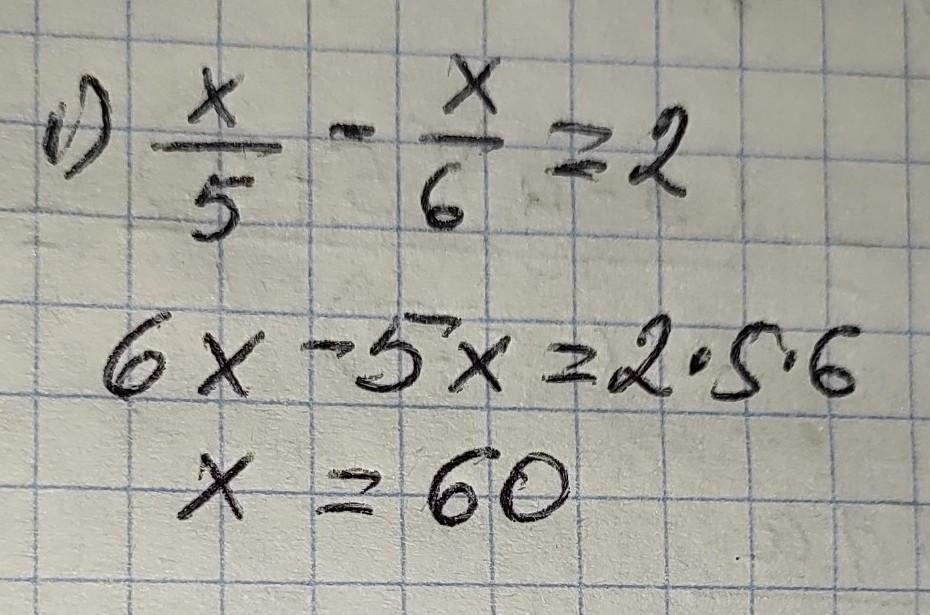 1) x/5 - x/6 = 2
6x - 5x = 2·5·6
x = 60